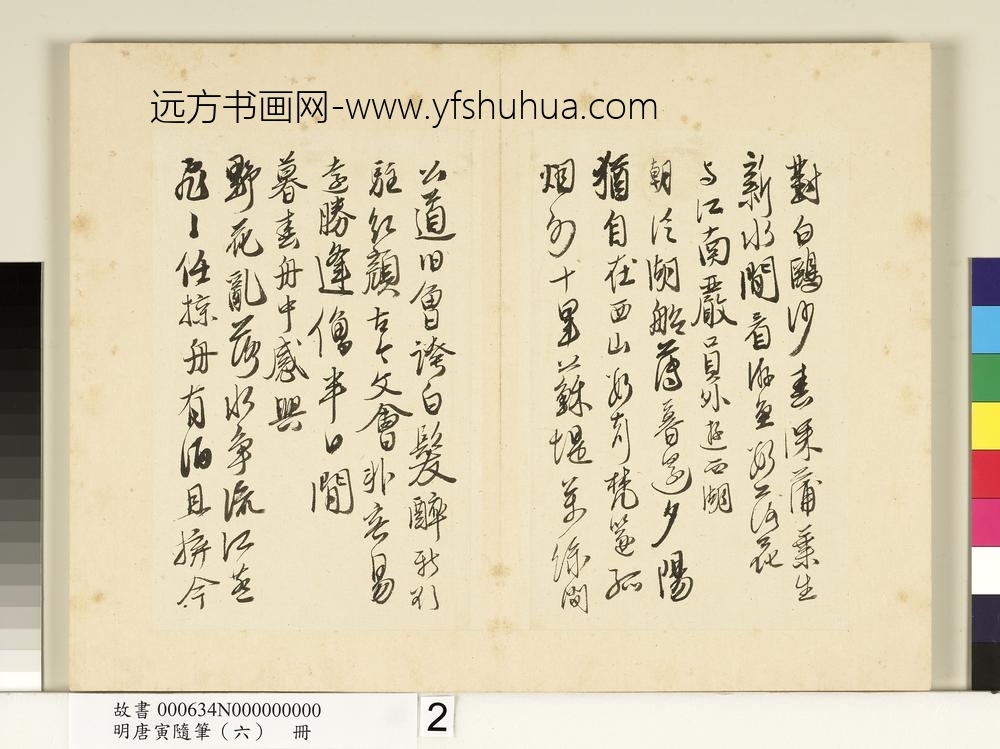 远方书画网-www.yfshuhua.com
對白鷗沙春深蒲葉生
新水閒看游魚數落花
与江南嚴員外遊西湖
朝泛湖船薄暮還夕陽
猶自在西山數声梵篴孤
烟外十里蘇堤萬綠間
公道旧曾誇白髮醉
駐紅顏古今文會非容易
遠勝逢僧半日閒
暮春舟中感興
野花亂落水争流江燕
飛〻任掠舟有酒且拚今
故書 000634N000000000
明唐寅隨筆（六） 冊
2